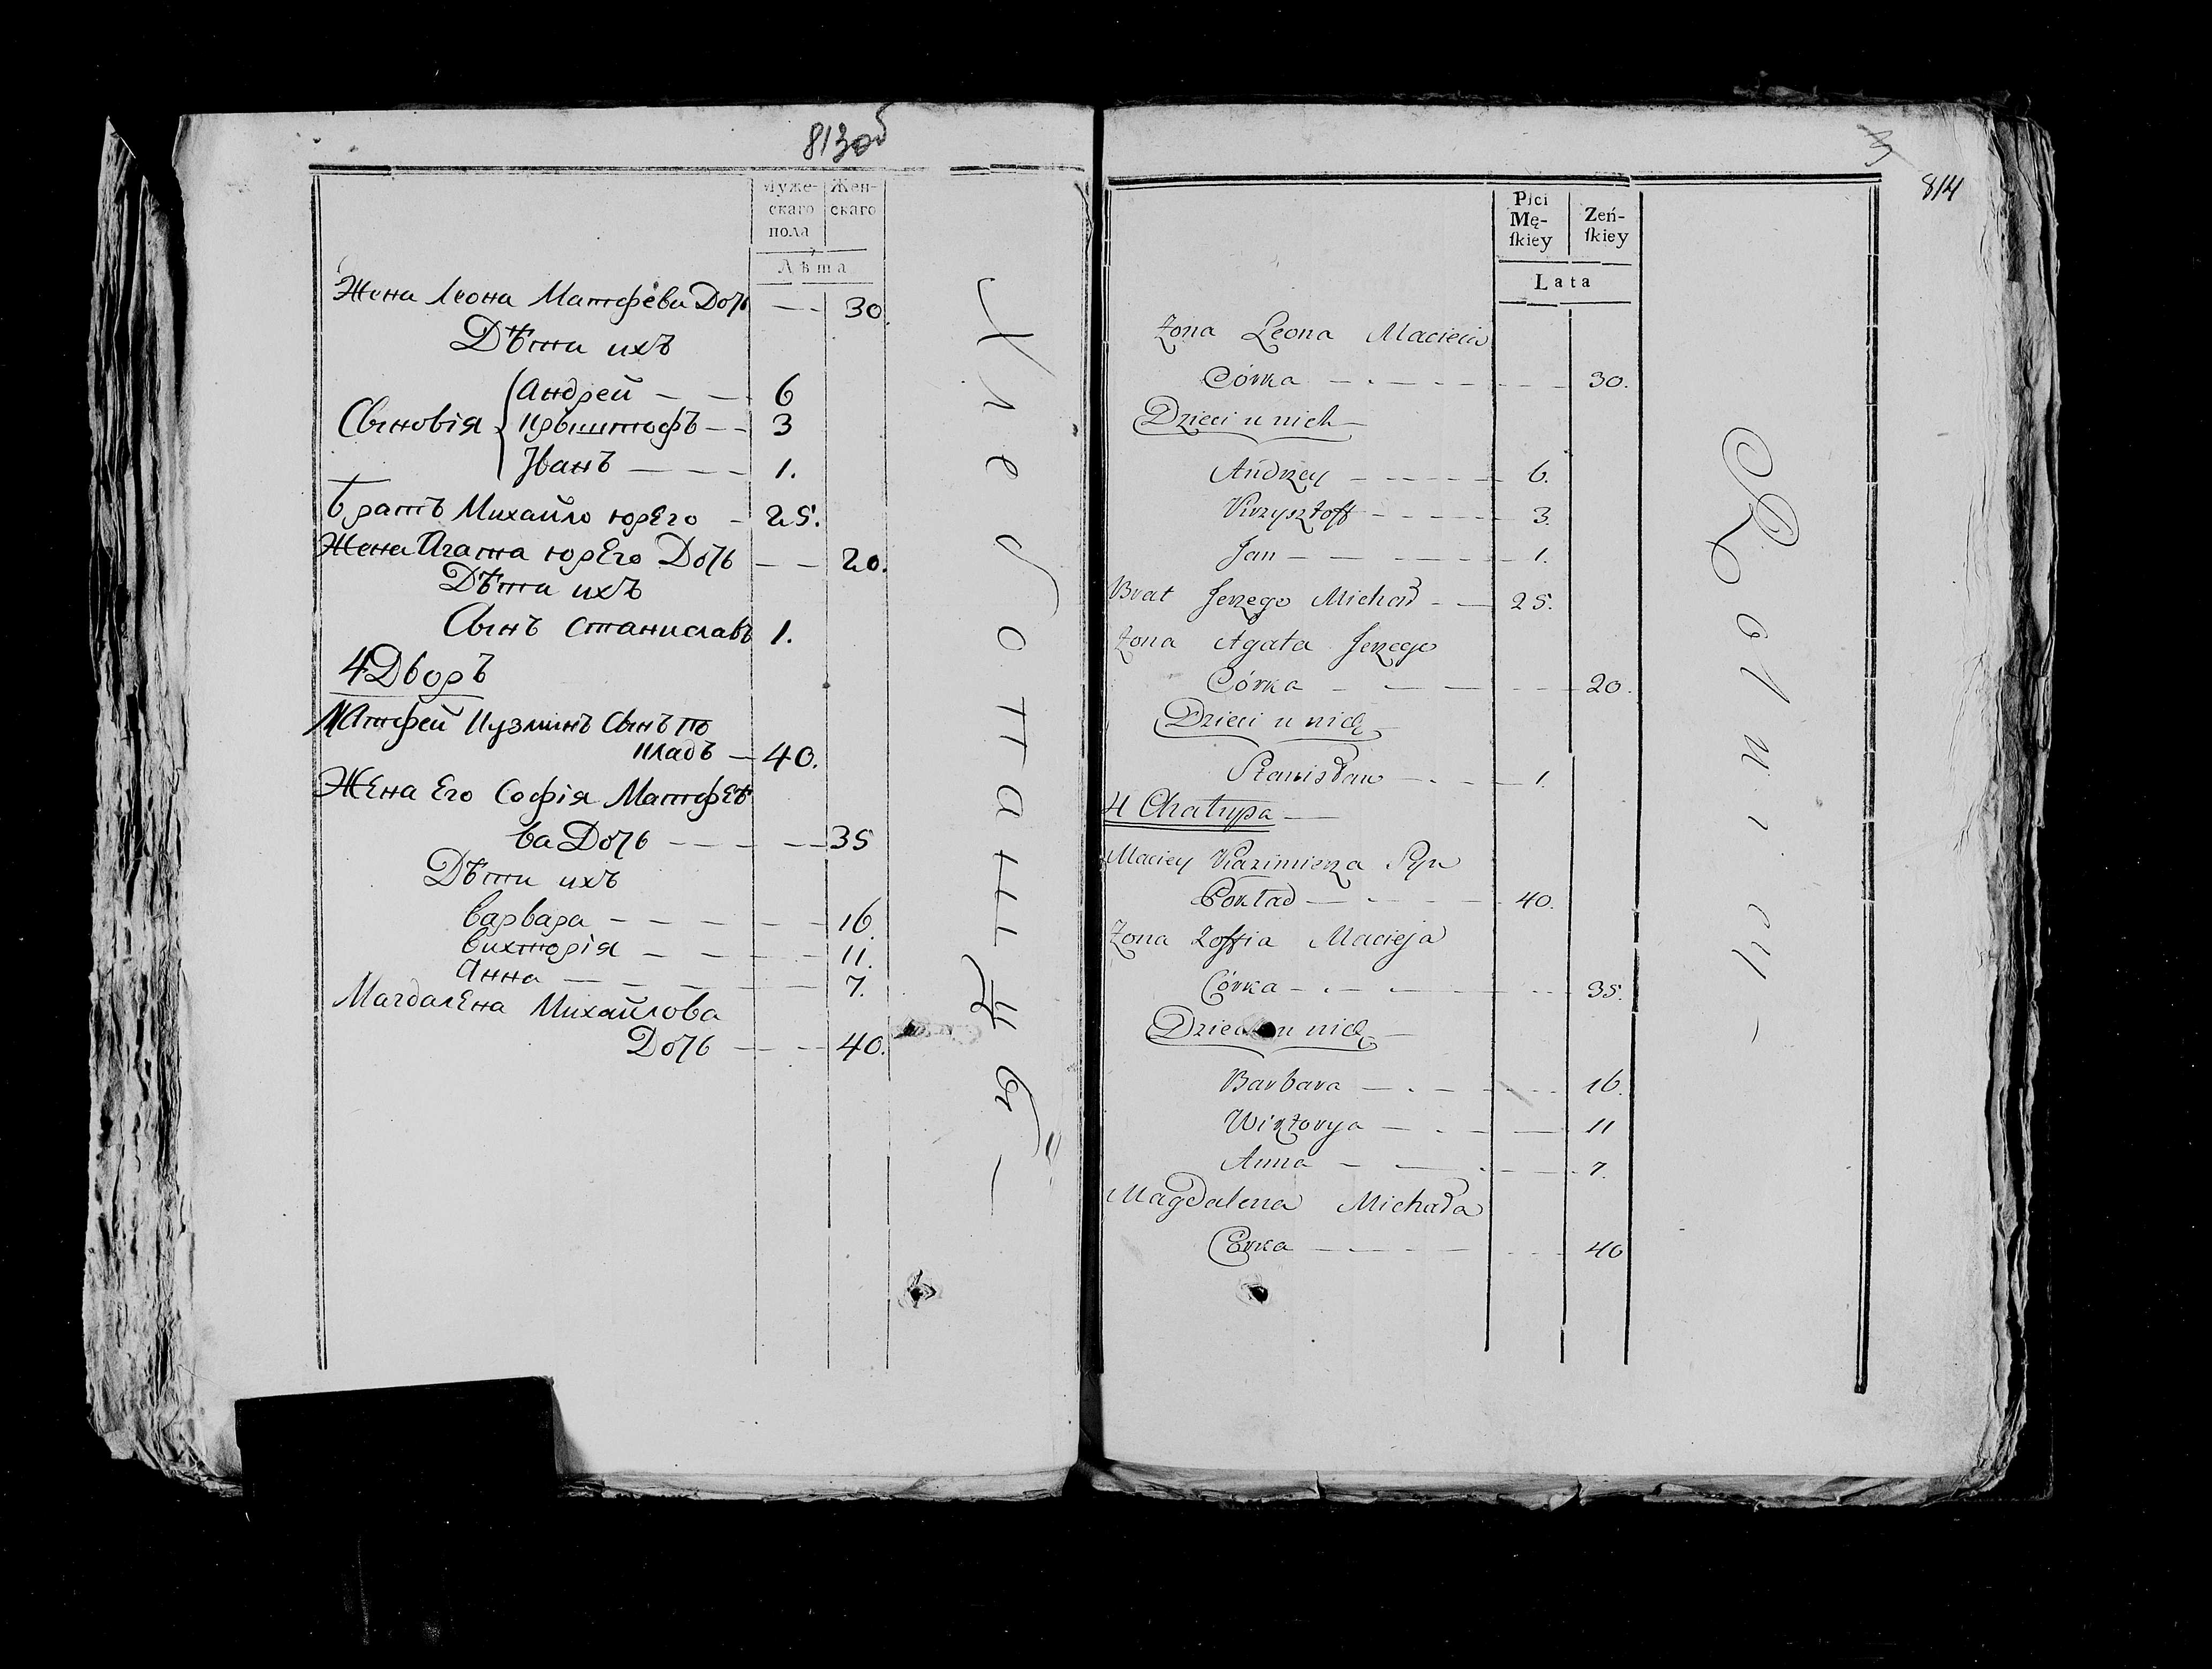 813об
Муже-
скаго
пола
Жен-
скаго
Лѣта
Жена Леона Матфева Дочь — 30.
Дѣти ихъ
Сыновія { Андрей — 6
Крыштофъ — 3
Іванъ — 1.
Братъ Михайло юрЕго — 25.
Жена Агата юрЕго Дочь — 20.
Дѣти ихъ
Сынъ Станиславъ 1.
4 Дворъ
Матфей Кузминъ Сынъ по
кладъ — 40.
Жена Его Софія Матфеѣ
ва Дочь — 35
Дѣти ихъ
Варвара — 16.
Викторія — 11.
Анна — 7.
Магдалена Михайлова
Дочь — 40.
Хлебопашцы —
3
814
Płci
Mę-
ſkiey
Zeń-
ſkiey
Lata
Zona Leona Macieia
Córka — 30.
Dzieci u nich
Andrzey — 6.
Krzysztoff — 3.
Jan — 1.
Brat Jerzego Michał — 25.
Zona Agata Jerzego
Córka — 20.
Dzieci u nich
Stanisław — 1.
4 Chałupa —
Maciey Kazimierza Syn
Pokład — 40.
Zona Zoffia Macieja
Córka — 35.
Dzieci u nich
Barbara — 16.
Wiktorya — 11
Anna — 7.
Magdalena Michała
Córka — 40
Rolnicy —